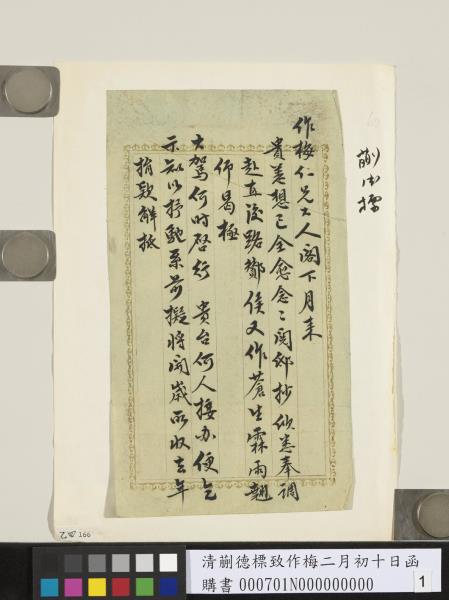 蒯德標
作梅仁兄大人閣下月来
貴恙想已全愈念〻閱邸抄欣悉奉調
赴直後路酇侯又作蒼生霖雨翹
仰曷極
大駕何時啓行 貴台何人接办便乞
示知以抒馳系前擬將開歲所收去年
捐款解
166
清蒯德標致作梅二月初十日函
購書 000701N000000000
1